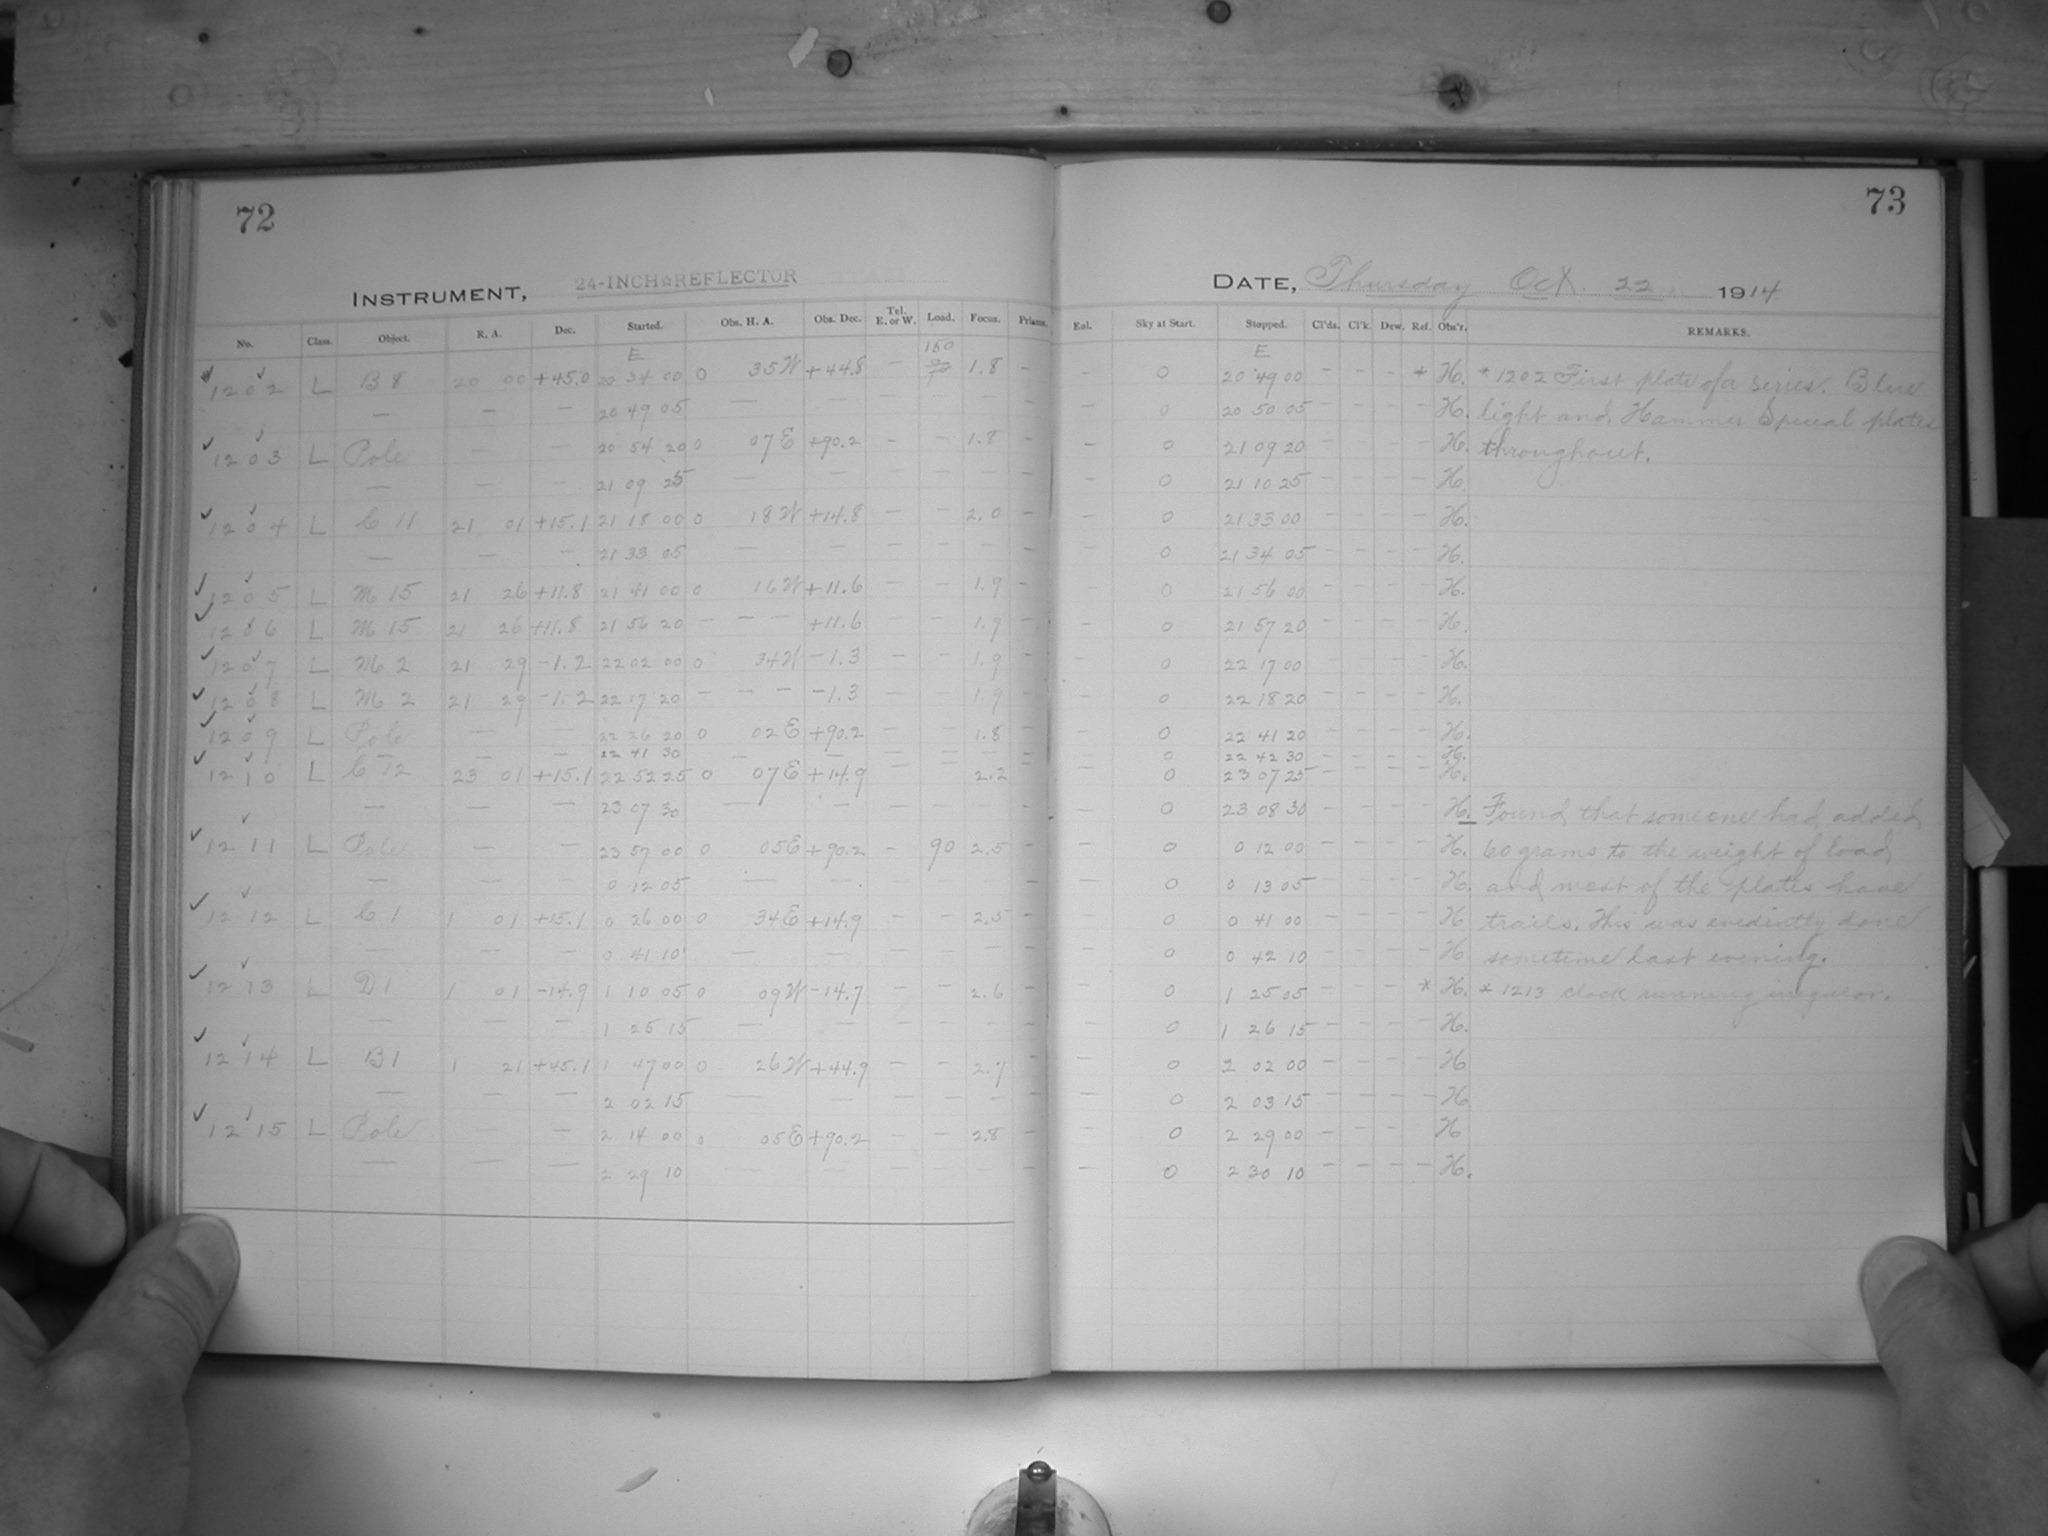 72
INSTRUMENT, 24-INCH☆REFLECTOR
No. Class. Object. R. A. Dec. Started. Obs. H. A. Obs. Dec. Tel. E. or W. Load. Focus. Prisms.
E 150
1202 L B 8 20 00 +45.0 20 34 00 0 35 W +44.8 — 1.8 —
— — — 20 49 05 — — — — — —
1203 L Pole — — 20 54 20 0 07 E +90.2 — — 1.8 —
— — — 21 09 25 — — — — — —
1204 L C 11 21 01 +15.1 21 18 00 0 18 W +14.8 — — 2.0 —
— — — 21 33 05 — — — — — —
1205 L M 15 21 26 +11.8 21 41 00 0 16 W +11.6 — — 1.9 —
1206 L M 15 21 26 +11.8 21 56 20 — — — +11.6 — — 1.9 —
1207 L M 2 21 29 -1.2 22 02 00 0 34 W -1.3 — — 1.9 —
1208 L M 2 21 29 -1.2 22 17 20 — — — -1.3 — — 1.9 —
1209 L Pole — — 22 26 20 0 02 E +90.2 — — 1.8 —
— — — 22 41 30 — — — — — —
1210 L C 12 23 01 +15.1 22 52 25 0 07 E +14.9 — — 2.2 —
— — — 23 07 30 — — — — — —
1211 L Pole — — 23 57 00 0 05 E +90.2 — 90 2.5 —
— — — 0 12 05 — — — — — —
1212 L C 1 1 01 +15.1 0 26 00 0 34 E +14.9 — — 2.5 —
— — — 0 41 10 — — — — — —
1213 L D 1 1 01 -14.9 1 10 05 0 09 W -14.7 — — 2.6 —
— — — 1 25 15 — — — — — —
1214 L B 1 1 21 +45.1 1 47 00 0 26 W +44.9 — — 2.7 —
— — — 2 02 15 — — — — — —
1215 L Pole — — 2 14 00 0 05 E +90.2 — — 2.8 —
— — — 2 29 10 — — — — — —
73
DATE, Thursday Oct. 22 1914
Eol. Sky at Start. Stopped. Cl'ds. Cl'k. Dew. Ref. Obs'r. REMARKS.
E
— 0 20 49 00 — — — * H. * 1202 First plate of a series. Blue
— 0 20 50 05 — — — — H. light and Hammer Special plates
— 0 21 09 20 — — — — H. throughout.
— 0 21 10 25 — — — — H.
— 0 21 33 00 — — — — H.
— 0 21 34 05 — — — — H.
— 0 21 56 00 — — — — H.
— 0 21 57 20 — — — — H.
— 0 22 17 00 — — — — H.
— 0 22 18 20 — — — — H.
— 0 22 41 20 — — — — H.
— 0 22 42 30 — — — — H.
— 0 23 07 25 — — — — H.
— 0 23 08 30 — — — — H. Found that someone had added
— 0 0 12 00 — — — — H. 60 grams to the weight of load
— 0 0 13 05 — — — — H. and most of the plates have
— 0 0 41 00 — — — — H trails. This was evidently done
— 0 0 42 10 — — — — H sometime last evening.
— 0 1 25 05 — — — * H. * 1213 clock running irregular.
— 0 1 26 15 — — — — H.
— 0 2 02 00 — — — — H
— 0 2 03 15 — — — — H
— 0 2 29 00 — — — — H
— 0 2 30 10 — — — — H.